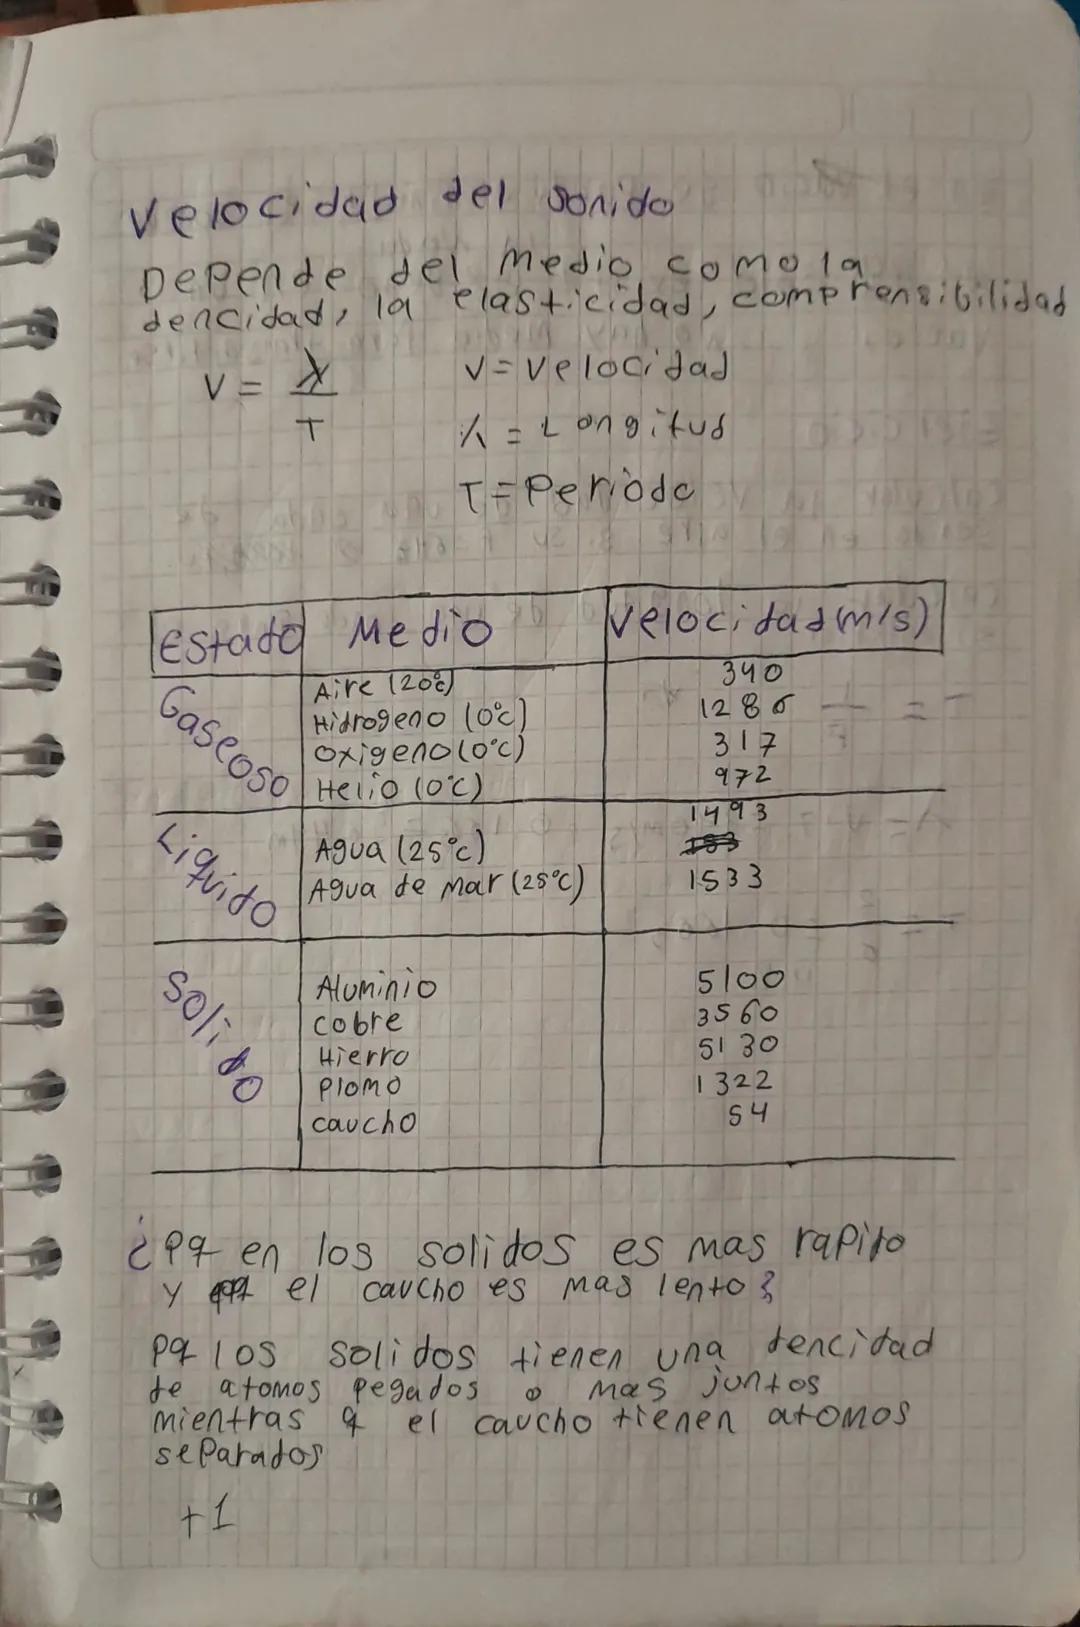 Velocidad del sonido
Depende del medio como la
dencidad, la elasticidad, comprensibilidad
V = λ / T
V = Velocidad
λ = Longitud
T = Periodo
Estado Medio Velocidad (m/s)
Gaseoso
Aire (20°c) 340
Hidrogeno (0°c) 1286
Oxigeno (0°c) 317
Helio (0°c) 972
Liquido
Agua (25°c) 1493
Agua de mar (25°c) 1533
Solido
Aluminio 5100
cobre 3560
Hierro 5130
Plomo 1322
caucho 54
¿Pq en los solidos es mas rapido
y el caucho es mas lento?
Pq los solidos tienen una dencidad
de atomos pegados o mas juntos
mientras q el caucho tienen atomos
separados
+1